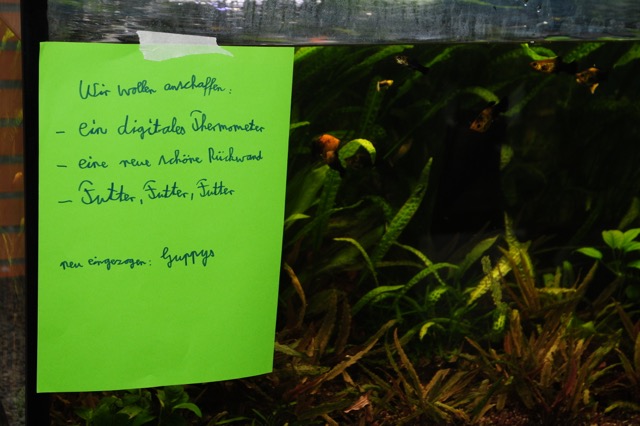 Wir wollen anschaffen:
- ein digitales Thermometer
- eine neue schöne Rückwand
- Futter, Futter, Futter
neu eingezogen: Guppys